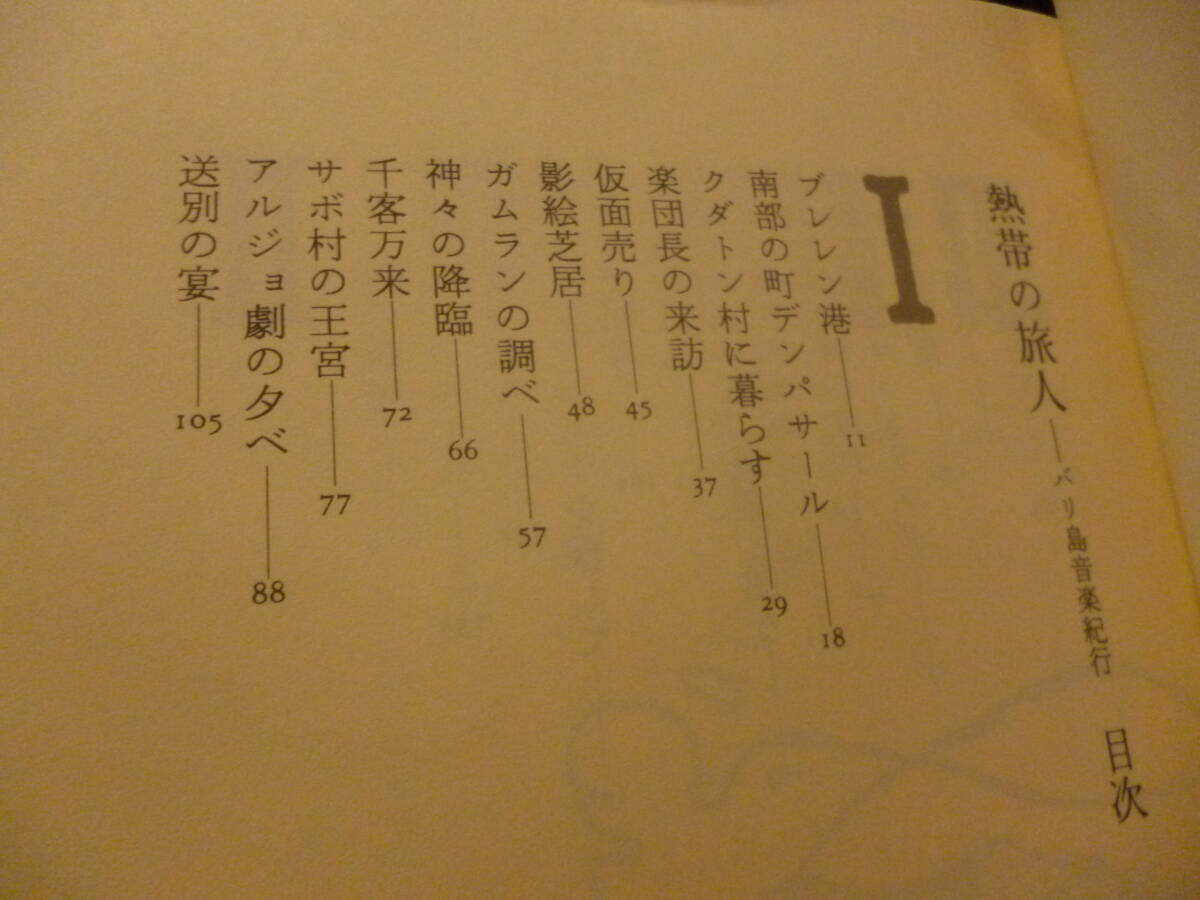 熱帯の旅人―バリ島音楽紀行 目次
I
ブレレン港―11
南部の町デンパサール―18
クダトン村に暮らす―29
楽団長の来訪―37
仮面売り―45
影絵芝居―48
ガムランの調べ―57
神々の降臨―66
千客万来―72
サボ村の王宮―77
アルジョ劇の夕べ―88
送別の宴―105